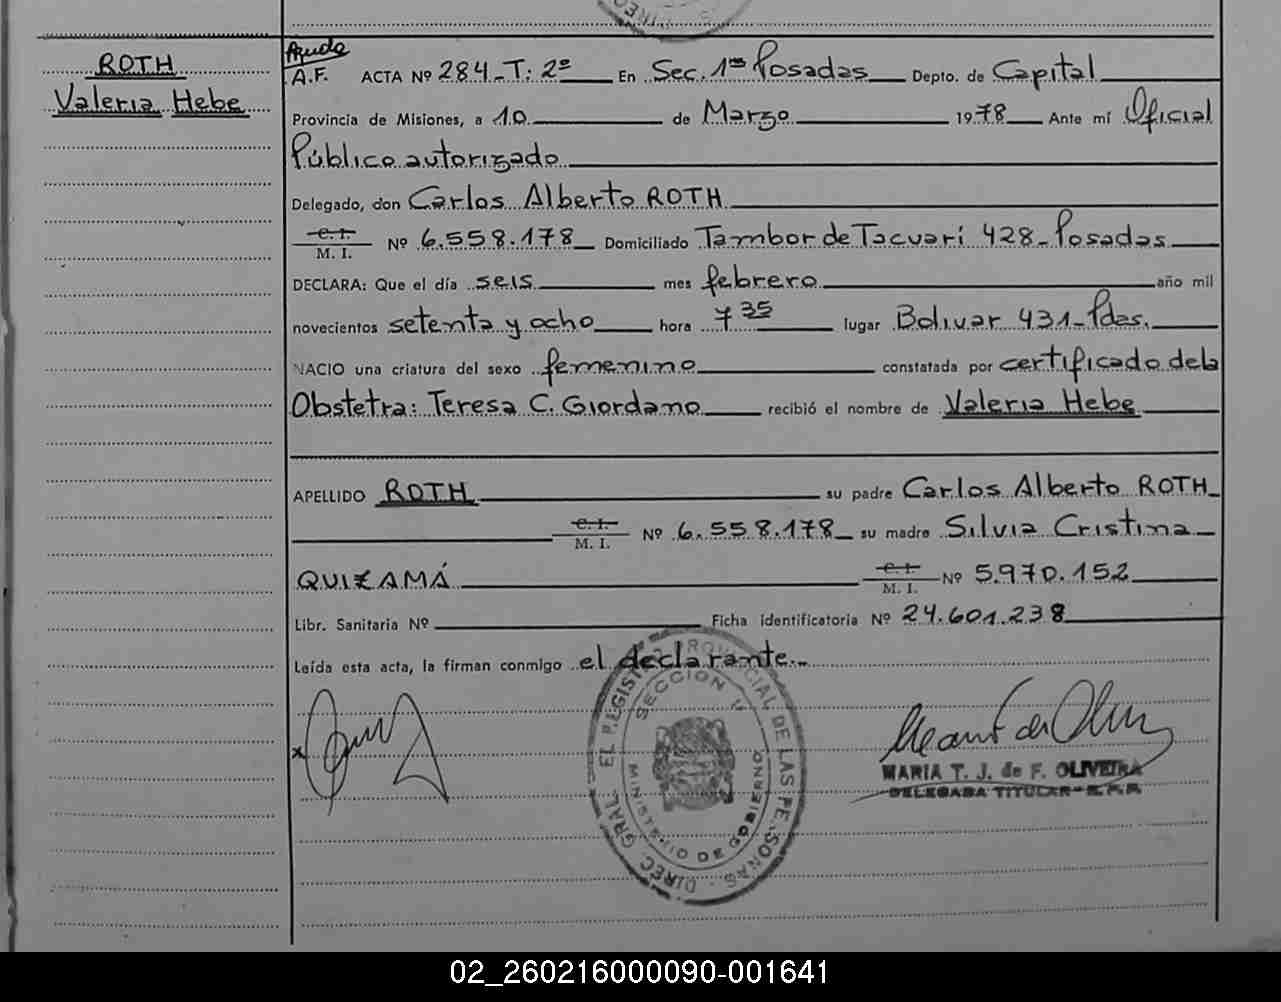 ROTH
Valeria Hebe
Ayuda
A.F. ACTA Nº 284-T: 2º En Sec. 1ª Posadas Depto. de Capital
Provincia de Misiones, a 10 de Marzo 1978 Ante mí Oficial
Público autorizado
Delegado, don Carlos Alberto ROTH
C. I.
M. I. Nº 6.558.178 Domiciliado Tambor de Tacuarí 428-Posadas
DECLARA: Que el día seis mes febrero año mil
novecientos setenta y ocho hora 7 35 lugar Bolivar 431-Pdas.
NACIO una criatura del sexo femenino constatada por certificado dela
Obstetra: Teresa C. Giordano recibió el nombre de Valeria Hebe
APELLIDO ROTH su padre Carlos Alberto ROTH
C. I.
M. I. Nº 6.558.178 su madre Silvia Cristina
QUIZAMÁ C. I.
M. I. Nº 5.970.152
Libr. Sanitaria Nº Ficha identificatoria Nº 24.601.238
Leída esta acta, la firman conmigo el declarante.-
DIREC. GRAL. EL REGISTRO PROVINCIAL DE LAS PERSONAS
SECCION
MINISTERIO DE GOBIERNO
MARIA T. J. de F. OLIVEIRA
DELEGADA TITULAR-R.P.P.
02_260216000090-001641